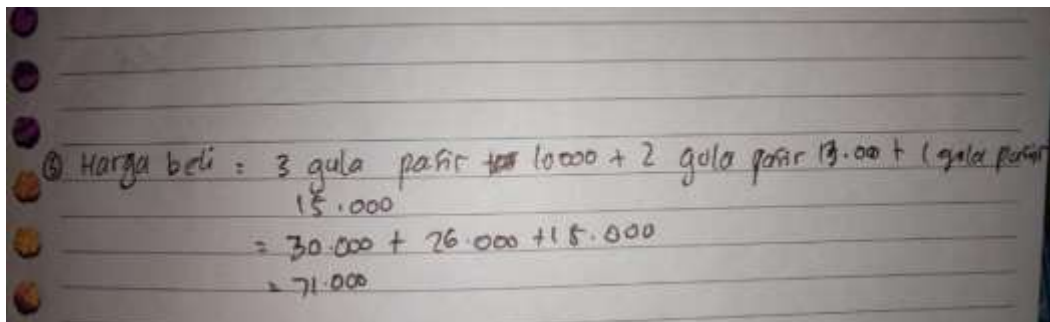 ③ Harga beli : 3 gula pasir 10000 + 2 gula pasir 13.00 + 1 gula pasir
15.000
= 30.000 + 26.000 + 15.000
= 71.000